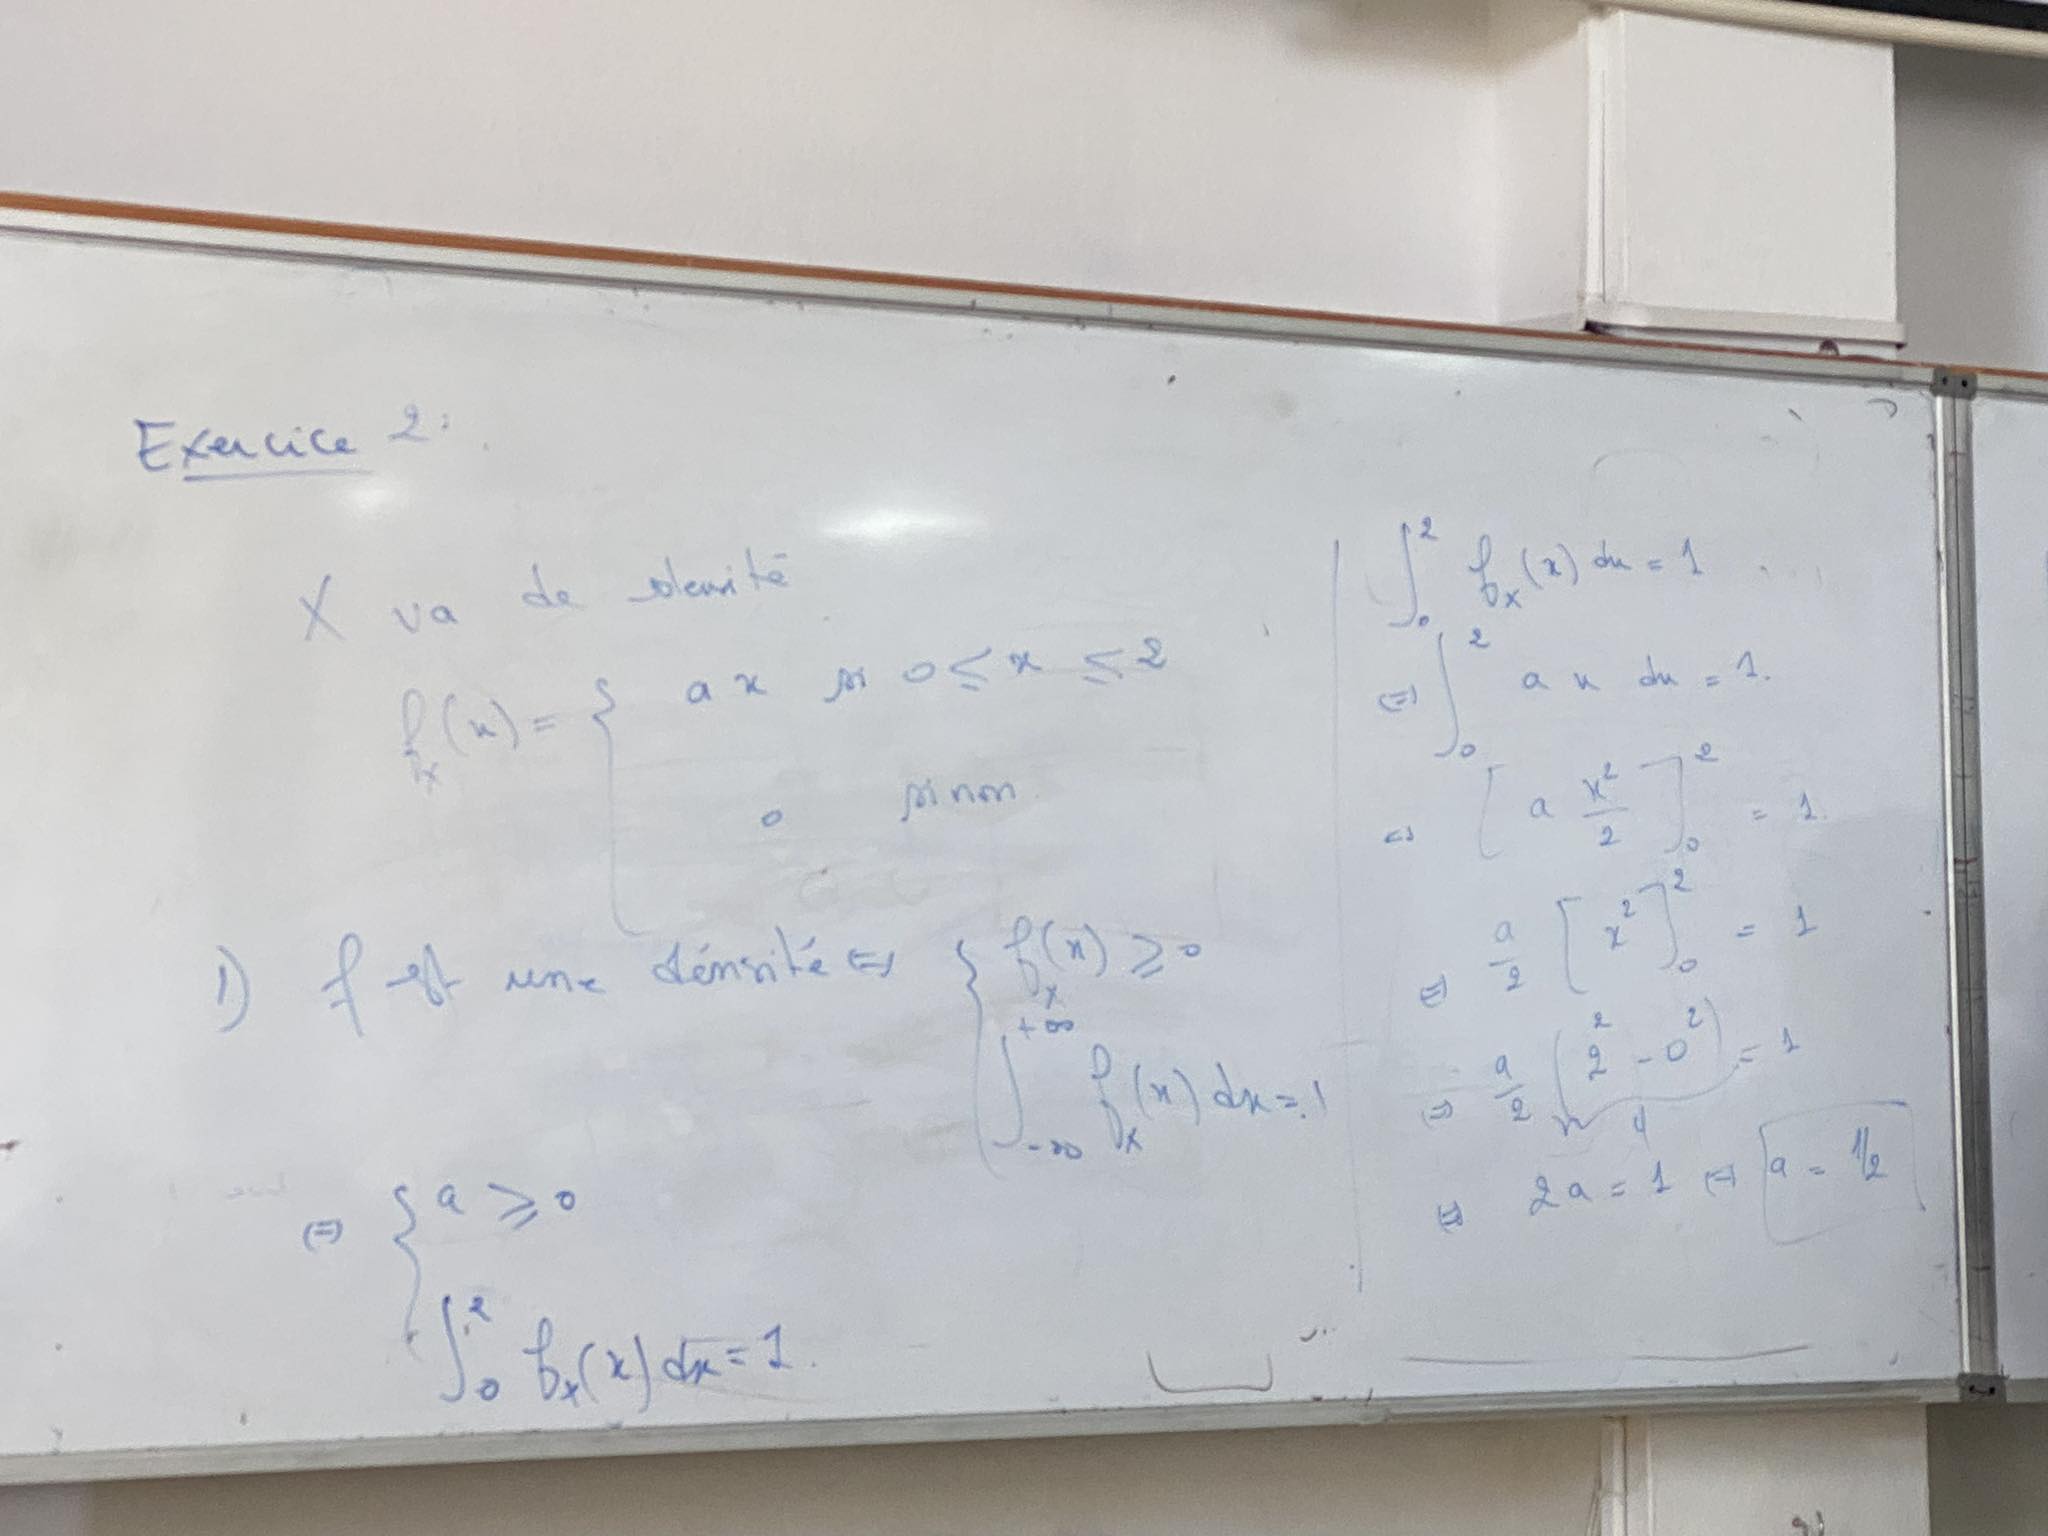 Exercice 2:
X va de densité
f_X(x) = { ax si 0 ≤ x ≤ 2
0 sinon
1) f est une dénsité ⇔ { f_X(x) ≥ 0
∫_{-∞}^{+∞} f_X(x) dx = 1
⇔ { a ≥ 0
∫_0^2 f_X(x) dx = 1.
∫_0^2 f_X(x) dx = 1
⇔ ∫_0^2 a x dx = 1.
⇔ [a x²/2]_0^2 = 1.
⇔ a/2 [x²]_0^2 = 1
⇔ a/2 (2² - 0²) = 1
4
⇔ 2a = 1 ⇔ a = 1/2